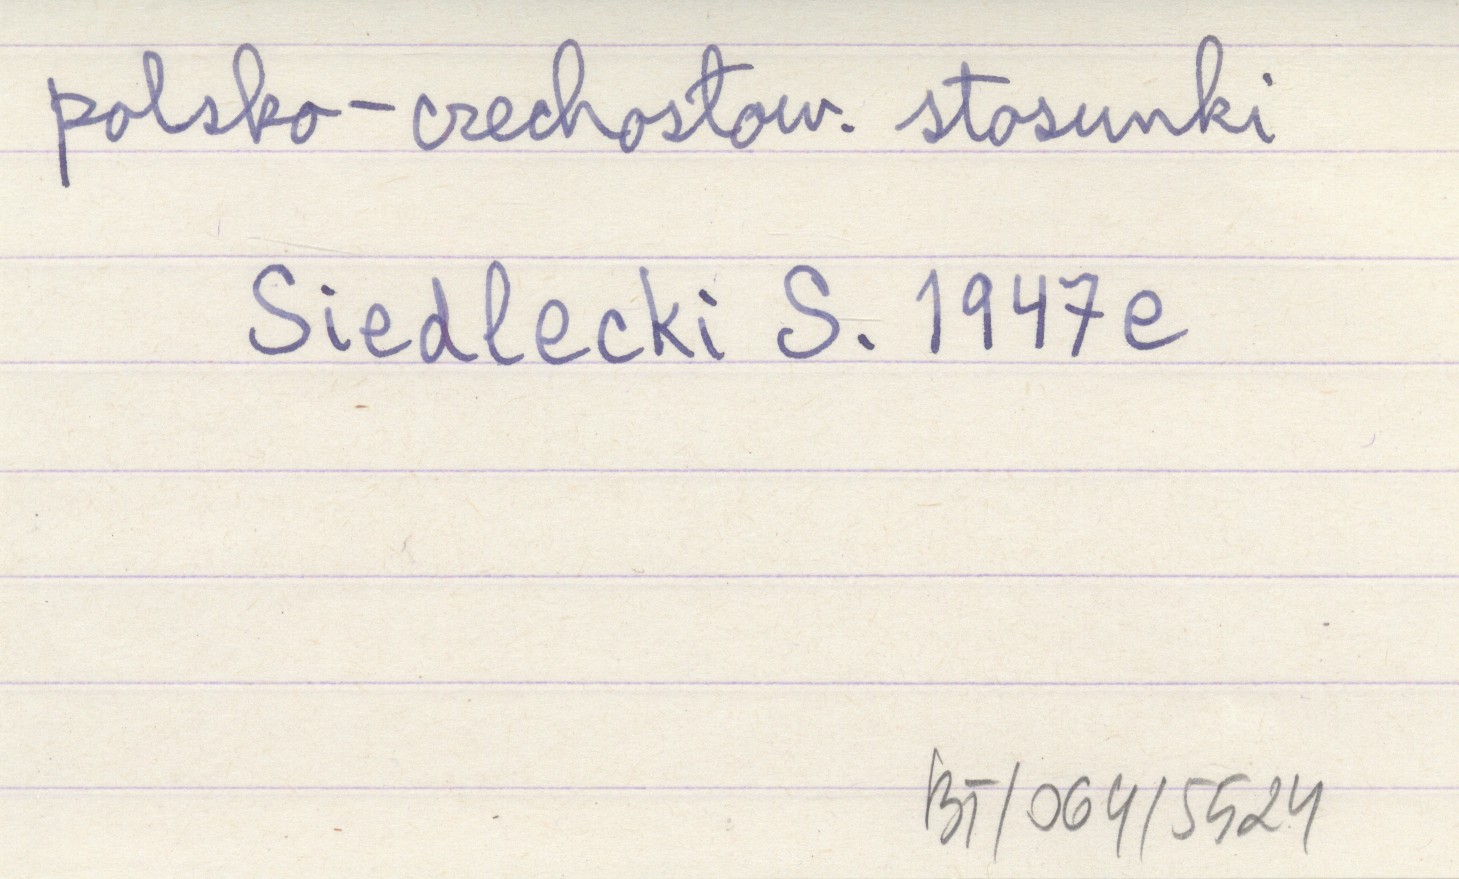 polsko-czechosłow. stosunki
Siedlecki S. 1947e
BT/064/5524